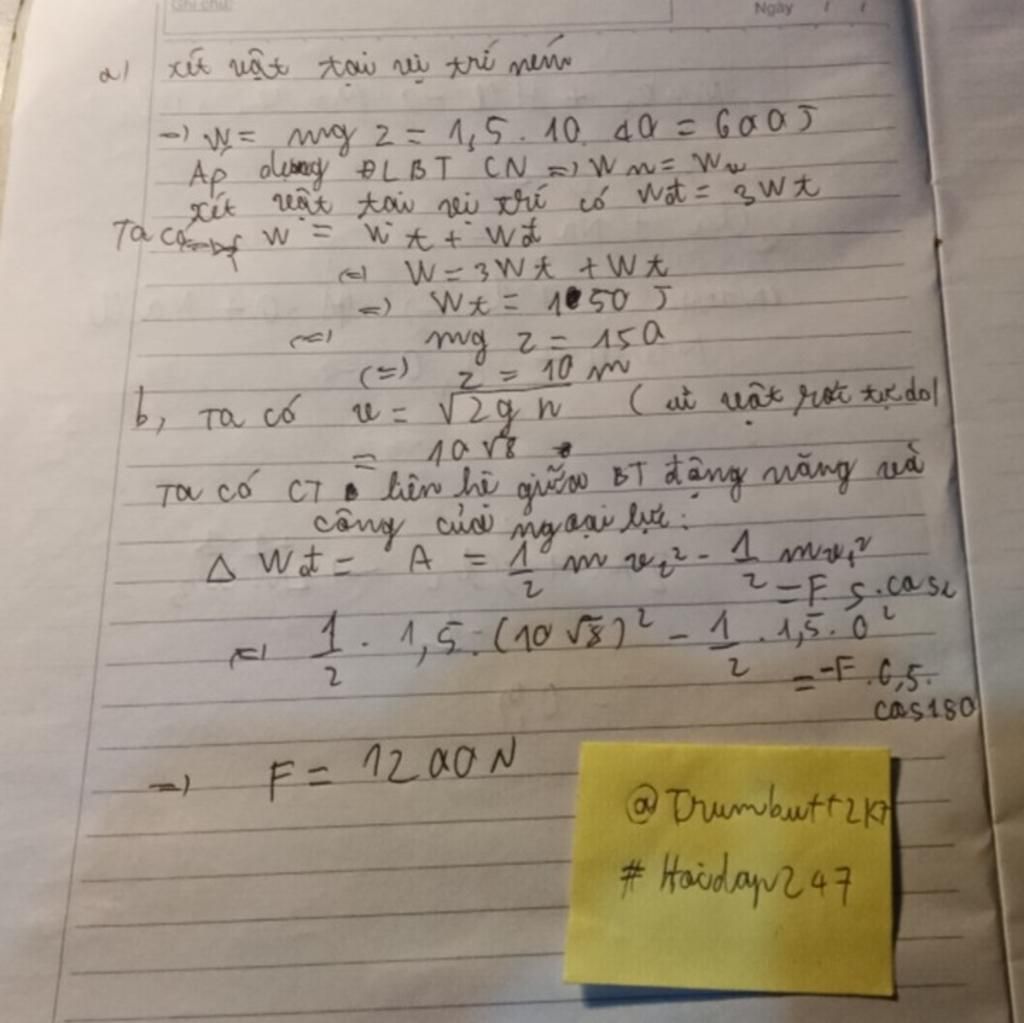 Ghi chú:
Ngày / /
a) xét vật tại vị trí ném
=) W = mg z = 1,5 . 10 . 40 = 600 J
Áp dụng ĐLBT CN =)
xét vật tại vị trí có Wđ = 3Wt
Ta có W = Wt + Wđ
(=) W = 3Wt + Wt
=) Wt = 150 J
(=) mg z = 150
(=) z = 10 m
b, Ta có v = √2gh (vì vật rơi tự do)
= 10√8
Ta có CT liên hệ giữa BT động năng và
công của ngoại lực:
Δ Wđ = A = 1/2 m v₂² - 1/2 mv₁²
= F. s.cos
(=) 1/2 . 1,5 . (10√8)² - 1/2 . 1,5 . 0²
= -F . 0,5 .
cos180
=) F = 1200 N
@Trumbutt2k7
# Hoidap247